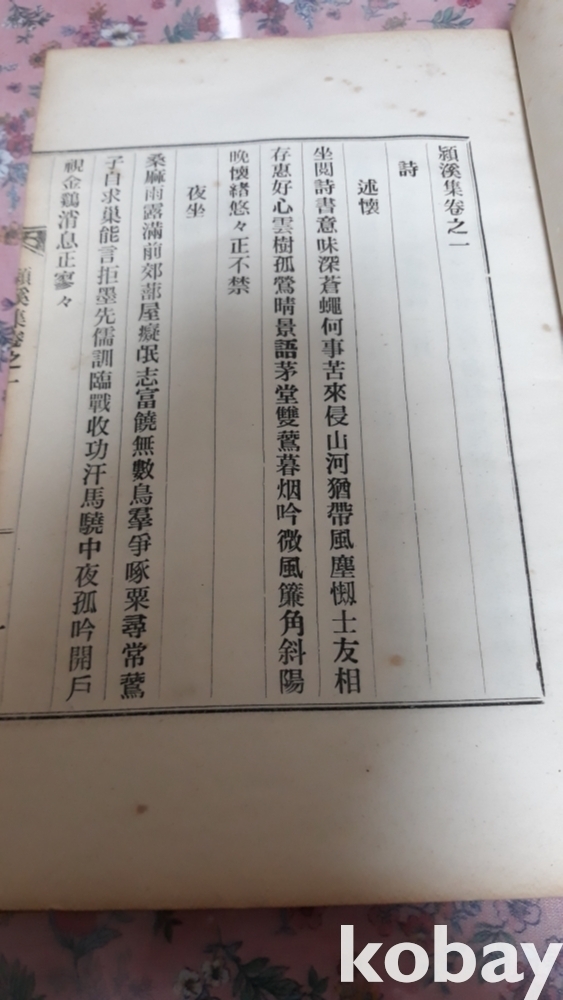 潁溪集卷之一
詩
述懷
坐閱詩書意味深蒼蠅何事苦來侵山河猶帶風塵惻士友相
存惠好心雲樹孤鶯晴景語茅堂雙鷰暮烟吟微風簾角斜陽
晚懷緖悠々正不禁
夜坐
桑麻雨露滿前郊蔀屋癡氓志富饒無數鳥羣爭啄粟尋常鷰
子自求巢能言拒墨先儒訓臨戰收功汗馬驍中夜孤吟開戶
視金鷄消息正寥々
潁溪集卷之一
kobay